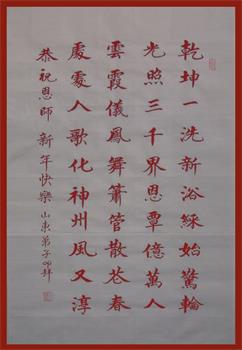 乾坤一洗新浴綵始驚輪
光照三千界恩覃億萬人
雲霞儀鳳舞簫管散花春
處處人歌化神州風又淳
恭祝恩師新年快樂山東弟子叩拜